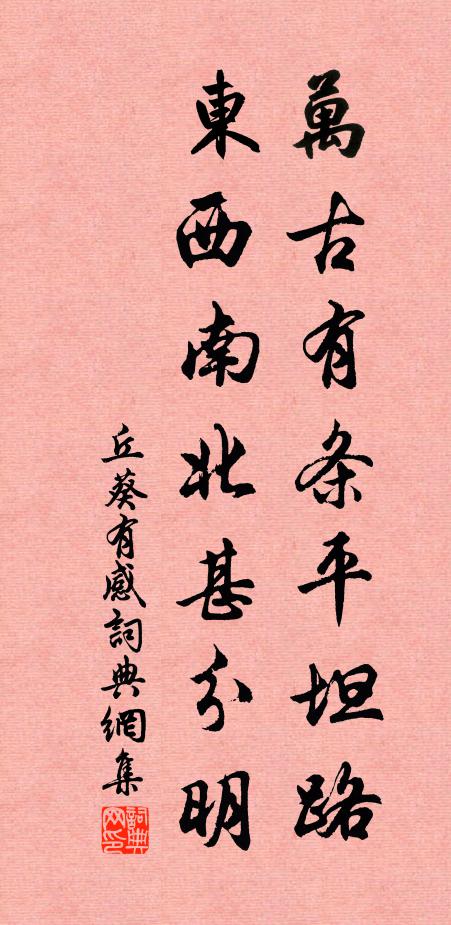 萬古有条平坦路
東西南北甚分明
丘葵有感詞典網集
詞典网印